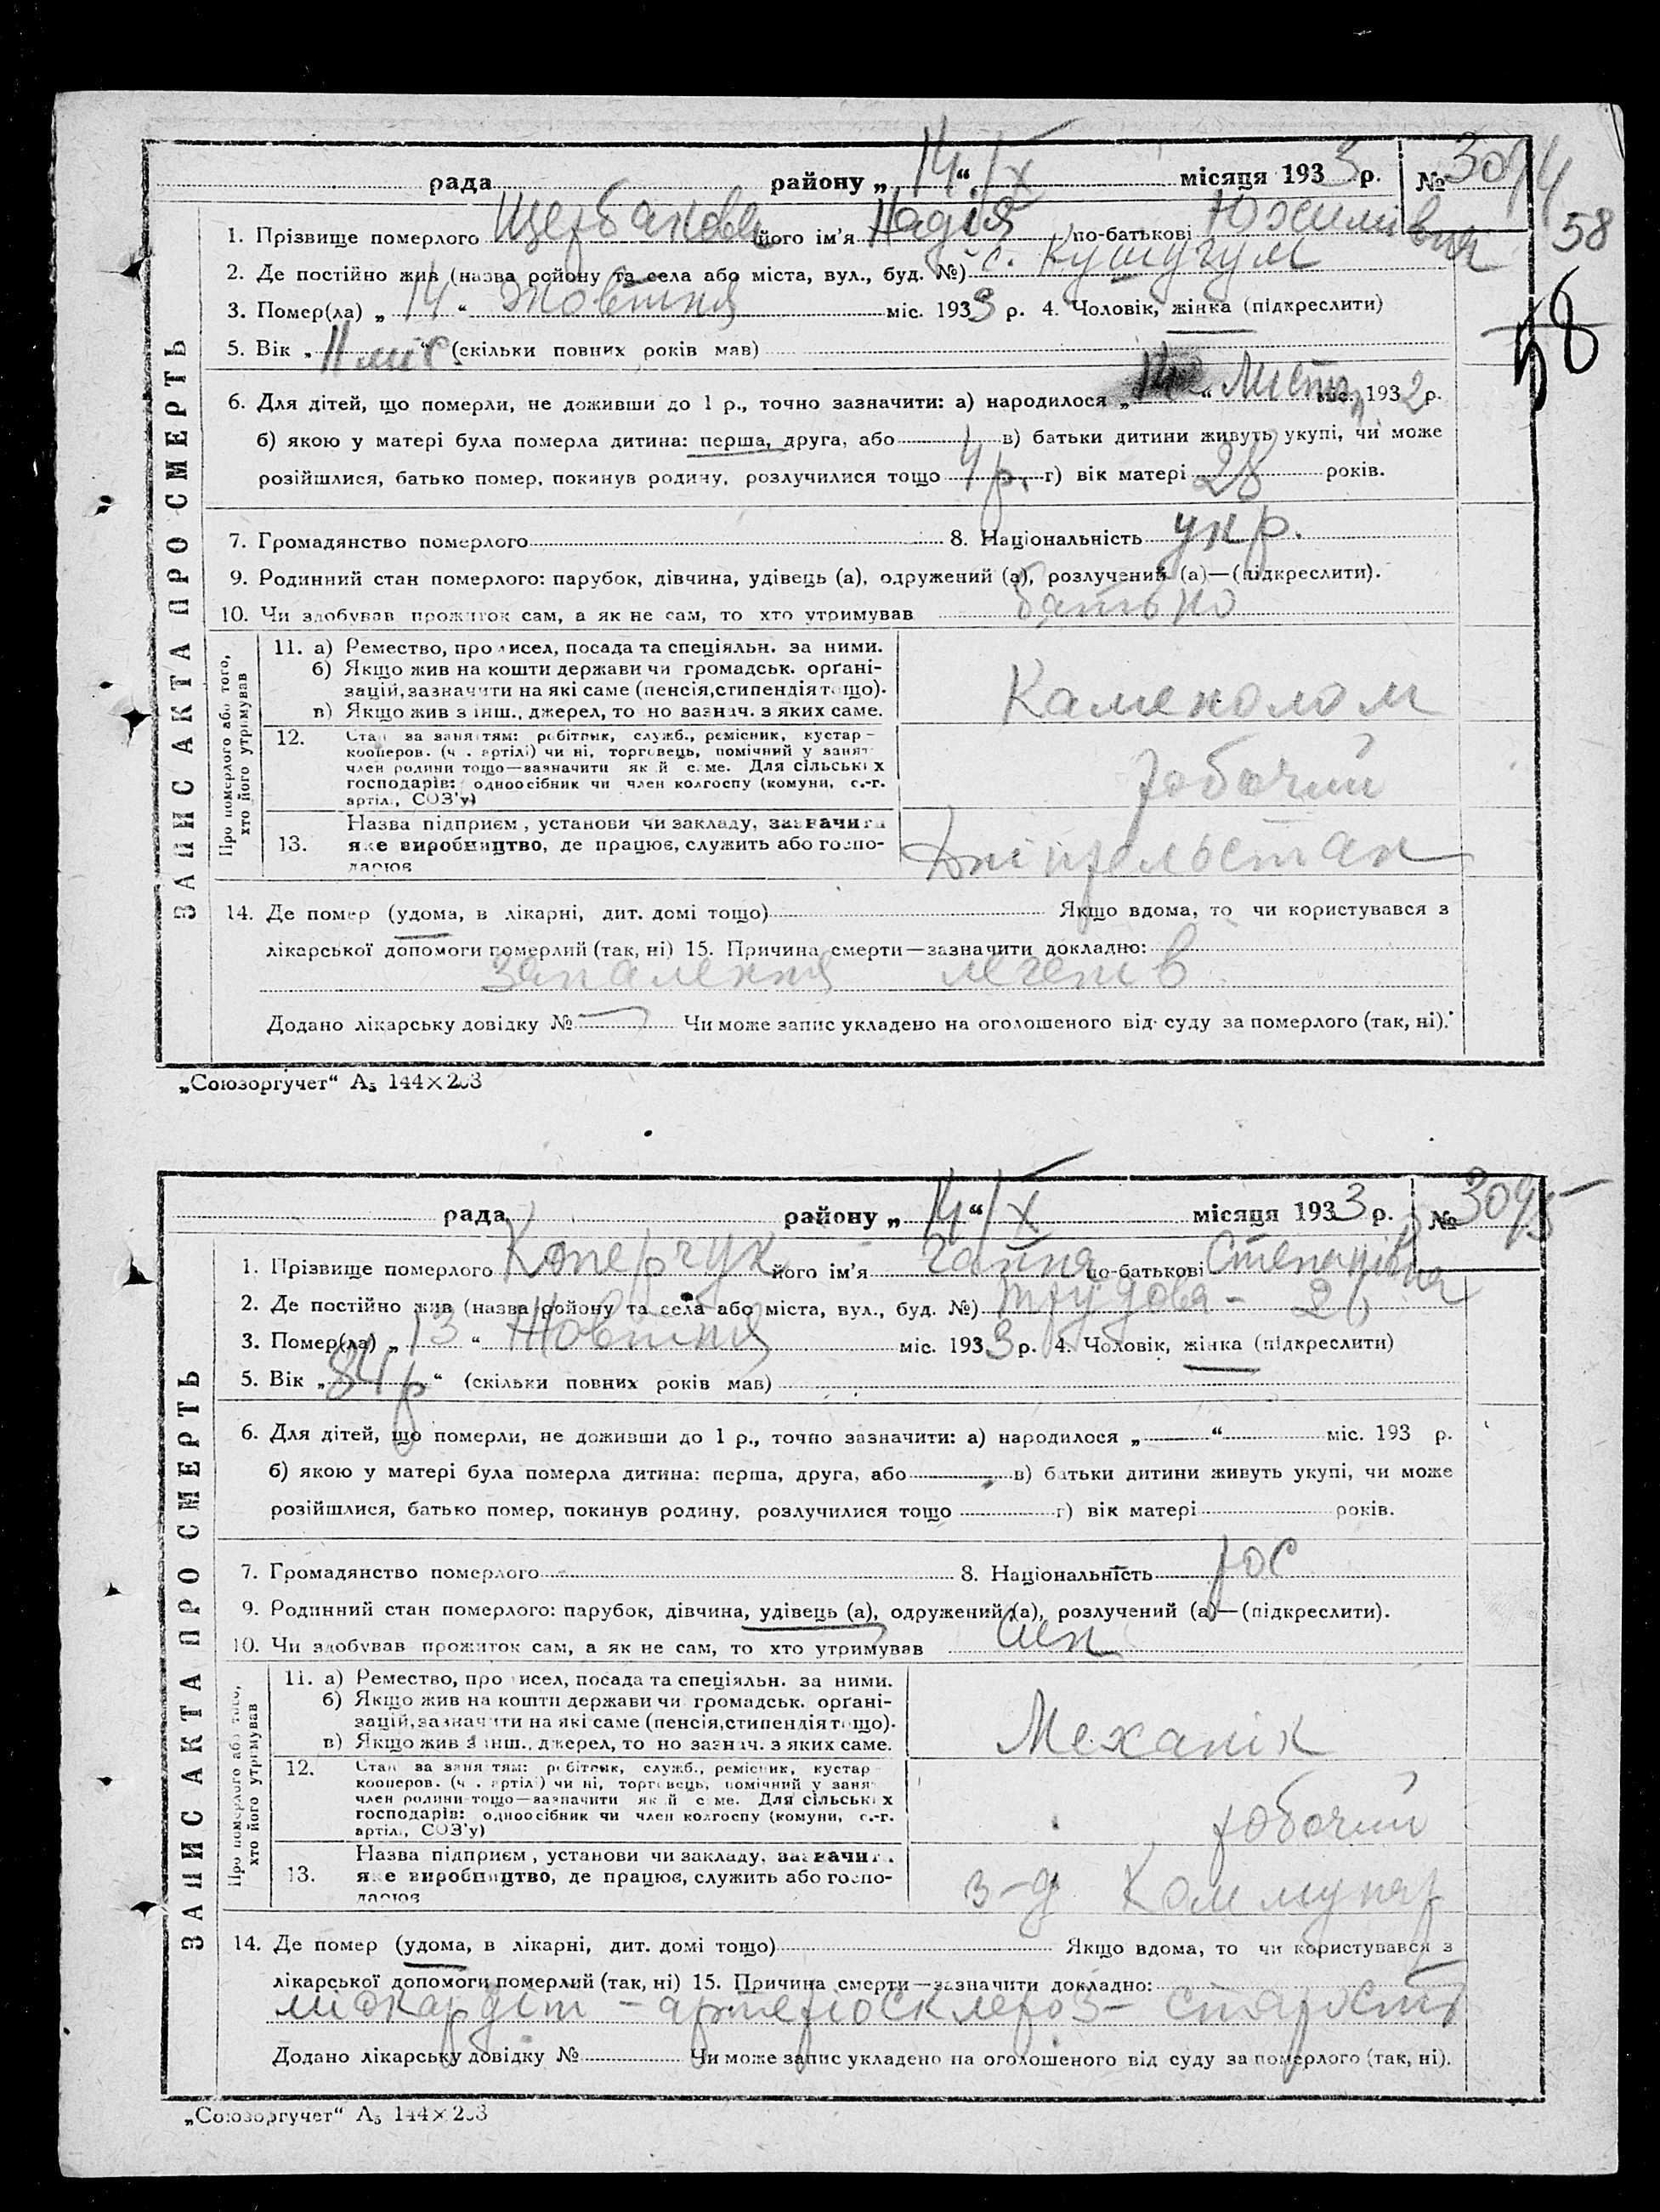 рада района „14“ /X місяця 1933 р. № 3094
58
1. Прізвище померлого Щербакова його ім'я Надія по-батькові Юхимівна
2. Де постійно жив (назва ройону та села або міста, вул., буд. №) с. Кушугум
3. Помер(ла) „14“ Жовтня міс. 1933 р. 4. Чоловік, жінка (підкреслити)
58
5. Вік „11 міс“ (скільки повних років мав)
6. Для дітей, що померли, не доживши до 1 р., точно зазначити: а) народилося „14“ Листп міс. 1932 р.
б) якою у матері була померла дитина: перша, друга, або в) батьки дитини живуть укупі, чи може
розійшлися, батько помер, покинув родину, розлучилися тощо г) вік матері 28 років.
7. Громадянство померлого 8. Національність укр.
9. Родинний стан померлого: парубок, дівчина, удівець (а), одружений (а), розлучений (а)—(підкреслити).
10. Чи здобував прожиток сам, а як не сам, то хто утримував батько
ЗАПИС АКТА ПРО СМЕРТЬ
Про померлого або того, хто його утримував
11. а) Ремество, промисел, посада та спеціяльн. за ними.
б) Якщо жив на кошти держави чи громадськ. орґані-
зацій, зазначити на які саме (пенсія, стипендія тощо).
в) Якщо жив з інш., джерел, то но зазнач. з яких саме.
Каменолом
12. Стан за заняттям: робітник, служб., ремісник, кустар-
кооперов. (ч. артілі) чи ні, торговець, помічний у занят
член родини тощо—зазначити який саме. Для сільських
господарів: одноосібник чи член колгоспу (комуни, с.-г.
артіл., СОЗ'у)
робочий
Назва підприєм, установи чи закладу, зазначити
13. яке виробництво, де працює, служить або госпо-
дарює
Дніпрельстан
14. Де помер (удома, в лікарні, дит. домі тощо) Якщо вдома, то чи користувався з
лікарської допомоги померлий (так, ні) 15. Причина смерти—зазначити докладно:
запалення легенів
Додано лікарську довідку № Чи може запис укладено на оголошеного від суду за померлого (так, ні).
„Союзоргучет“ А5 144×203
рада району „14“ /X місяця 1933 р. № 3095
1. Прізвище померлого його ім'я Гапня по-батькові Степанівна
2. Де постійно жив (назва ройону та села або міста, вул., буд. №) Трудова - 26
3. Помер(ла) „13“ Жовтня міс. 1933 р. 4. Чоловік, жінка (підкреслити)
5. Вік „84 р“ (скільки повних років мав)
6. Для дітей, що померли, не доживши до 1 р., точно зазначити: а) народилося „ “ міс. 193 р.
б) якою у матері була померла дитина: перша, друга, або в) батьки дитини живуть укупі, чи може
розійшлися, батько помер, покинув родину, розлучилися тощо г) вік матері років.
7. Громадянство померлого 8. Національність рос
9. Родинний стан померлого: парубок, дівчина, удівець (а), одружений (а), розлучений (а)—(підкреслити).
10. Чи здобував прожиток сам, а як не сам, то хто утримував син
ЗАПИС АКТА ПРО СМЕРТЬ
Про померлого або того, хто його утримував
11. а) Ремество, промисел, посада та спеціяльн. за ними.
б) Якщо жив на кошти держави чи громадськ. орґані-
зацій, зазначити на які саме (пенсія, стипендія тощо).
в) Якщо жив з інш., джерел, то но зазнач. з яких саме.
Механік
12. Стан за заняттям: робітник, служб., ремісник, кустар
кооперов. (ч. артілі) чи ні, торговець, помічний у занят
член родини тощо—зазначити який саме. Для сільських
господарів: одноосібник чи член колгоспу (комуни, с.-г.
артіл., СОЗ'у)
робочий
Назва підприєм, установи чи закладу, зазначити
13. яке виробництво, де працює, служить або госпо-
дарює
з-д Коммунар
14. Де помер (удома, в лікарні, дит. домі тощо) Якщо вдома, то чи користувався з
лікарської допомоги померлий (так, ні) 15. Причина смерти—зазначити докладно:
міокардіт - артеріосклероз - старость
Додано лікарську довідку № Чи може запис укладено на оголошеного від суду за померлого (так, ні).
„Союзоргучет“ А5 144×203